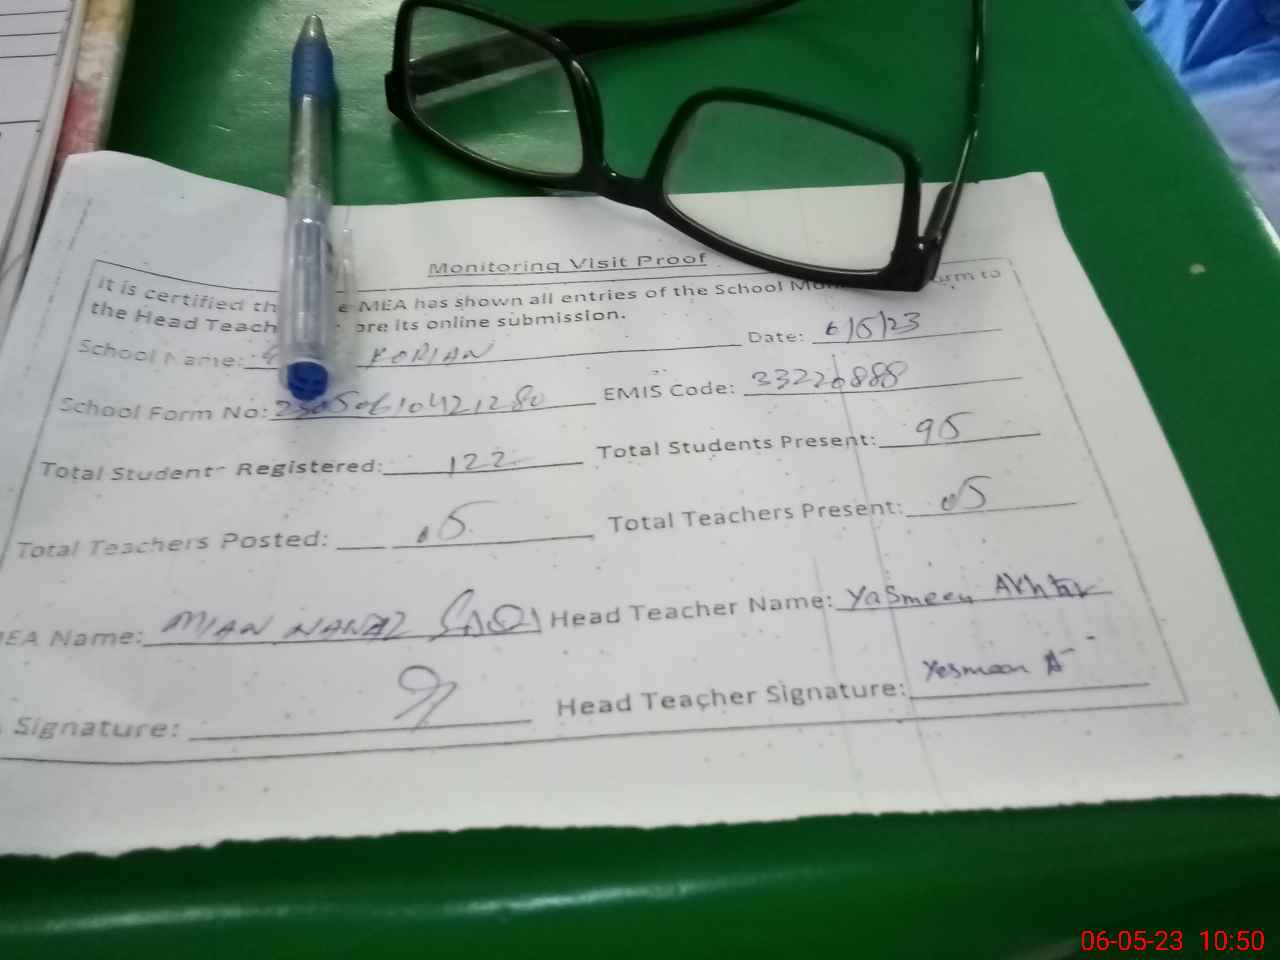 Monitoring Visit Proof
It is certified th e MEA has shown all entries of the School Mon orm to
the Head Teach ore its online submission.
School Name: KORIAN Date: 6/5/23
School Form No: EMIS Code: 33220888
Total Students Registered: 122 Total Students Present: 95
Total Teachers Posted: 05 Total Teachers Present: 05
MEA Name: MIAN NAWAZ Head Teacher Name: Yasmeen Akhtar
Signature: Head Teacher Signature: Yesmeen A
06-05-23 10:50